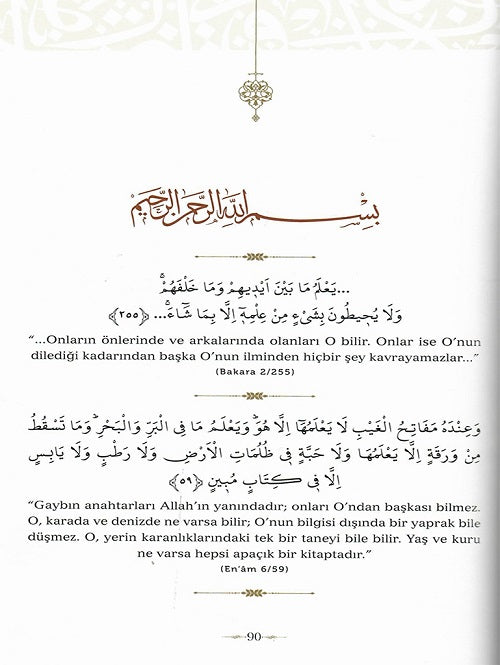 بِسْمِ اللّٰهِ الرَّحْمٰنِ الرَّحِيمِ
...يَعْلَمُ مَا بَيْنَ اَيْدِيهِمْ وَمَا خَلْفَهُمْۚ
وَلَا يُحِيطُونَ بِشَيْءٍ مِنْ عِلْمِهِٓ اِلَّا بِمَا شَٓاءَۚ... ﴿٢٥٥﴾
“...Onların önlerinde ve arkalarında olanları O bilir. Onlar ise O’nun
dilediği kadarından başka O’nun ilminden hiçbir şey kavrayamazlar...”
(Bakara 2/255)
وَعِنْدَهُ مَفَاتِحُ الْغَيْبِ لَا يَعْلَمُهَٓا اِلَّا هُوَۜ وَيَعْلَمُ مَا فِي الْبَرِّ وَالْبَحْرِۜ وَمَا تَسْقُطُ
مِنْ وَرَقَةٍ اِلَّا يَعْلَمُهَا وَلَا حَبَّةٍ فِي ظُلُمَاتِ الْاَرْضِ وَلَا رَطْبٍ وَلَا يَابِسٍ
اِلَّا فِي كِتَابٍ مُبِينٍ ﴿٥٩﴾
“Gaybın anahtarları Allah’ın yanındadır; onları O’ndan başkası bilmez.
O, karada ve denizde ne varsa bilir; O’nun bilgisi dışında bir yaprak bile
düşmez. O, yerin karanlıklarındaki tek bir taneyi bile bilir. Yaş ve kuru
ne varsa hepsi apaçık bir kitaptadır.”
(En’âm 6/59)
90